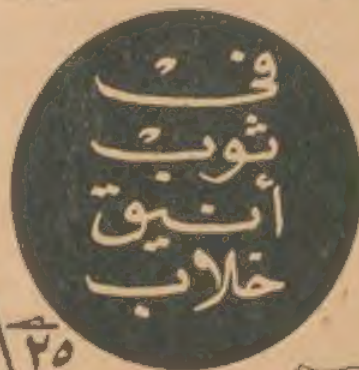 في
ثوب
أنيق
خلاب
٢٥